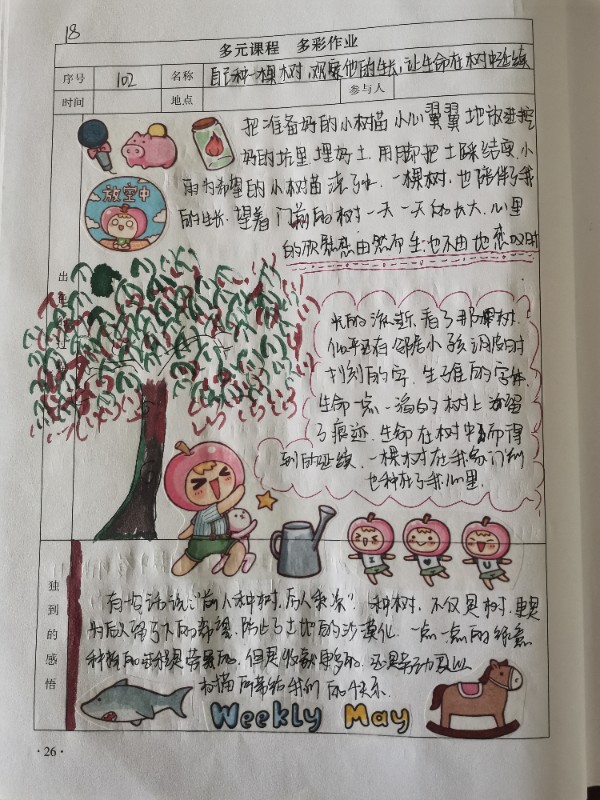 18
多元课程 多彩作业
序号 102 名称 自己种一棵树,观察他的生长,让生命在树中延续
时间 地点 参与人
把准备好的小树苗小心翼翼地放进挖
好的坑里,埋好土,用脚把土踩结实,小
的小树苗浇了水。一棵树,也陪伴了我
放空中
的生长,望着门前的树一天一天的长大,心里
的欣慰感由然而生,也不由地感叹时
光的流逝,看了那棵树,
似乎还有邻居小孩调皮时
刻到的字,生了锈的字体,
生命一点一滴的在树上
了痕迹,生命在树中而得
到的延续,一棵树在我家门前
也种在了我心里。
独到的感悟
有句话说:“前人种树,后人乘凉”种树,不仅是树,更是
为后人留下的希望,防止了土地的沙漠化,一点一点的绿意
种植的过程是劳累的,但是收获更多的,还是劳动及以
树苗所带给我们的快乐。
Weekly May
I U
·26·